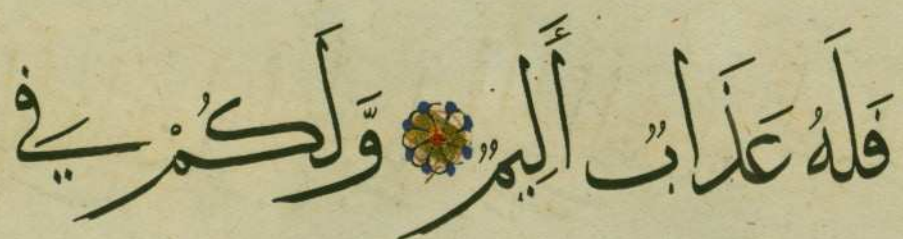 فَلَهُ عَذَابٌ أَلِيمٌ وَّلَكُمْ فِي